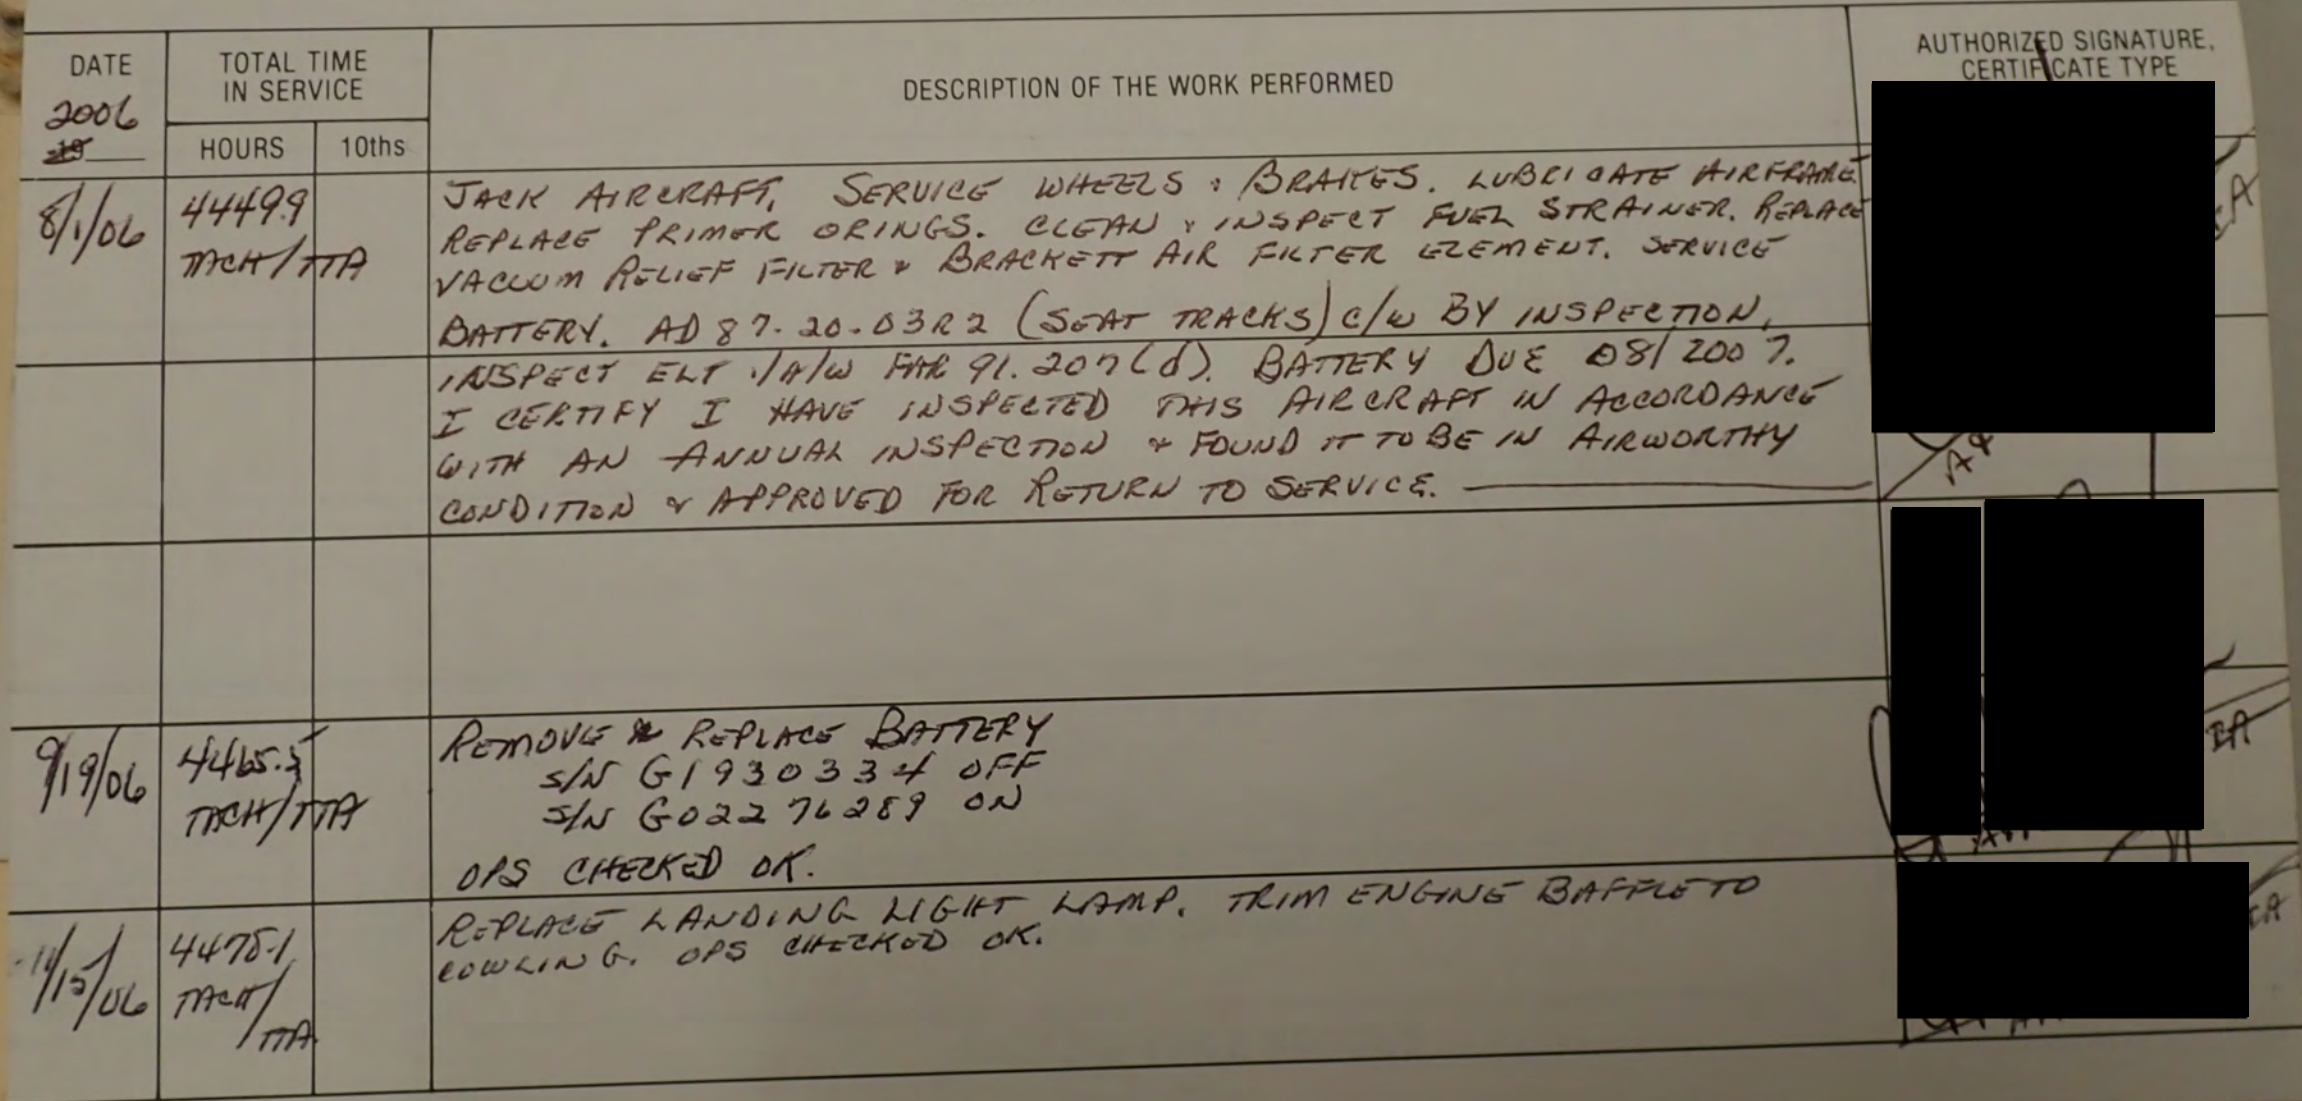 DATE
TOTAL TIME
IN SERVICE
DESCRIPTION OF THE WORK PERFORMED
AUTHORIZED SIGNATURE,
CERTIFICATE TYPE
2006
19
HOURS
10ths
8/1/06
4449.9
TACH/TTA
JACK AIRCRAFT, SERVICE WHEELS & BRAKES. LUBRICATE AIRFRAME
REPLACE PRIMER ORINGS. CLEAN & INSPECT FUEL STRAINER. REPLACE
VACUUM RELIEF FILTER & BRACKETT AIR FILTER ELEMENT. SERVICE
BATTERY. AD 87-20-03R2 (SEAT TRACKS) C/W BY INSPECTION,
INSPECT ELT I/A/W FAR 91.207(d). BATTERY DUE 08/2007.
I CERTIFY I HAVE INSPECTED THIS AIRCRAFT IN ACCORDANCE
WITH AN ANNUAL INSPECTION & FOUND IT TO BE IN AIRWORTHY
CONDITION & APPROVED FOR RETURN TO SERVICE.
9/19/06
4465.5
TACH/TTA
REMOVE & REPLACE BATTERY
S/N G1930334 OFF
S/N G02276289 ON
OPS CHECKED OK.
IA
11/15/06
4478.1
TACH/
TTA
REPLACE LANDING LIGHT LAMP. TRIM ENGINE BAFFLE TO
COWLING. OPS CHECKED OK.
IA